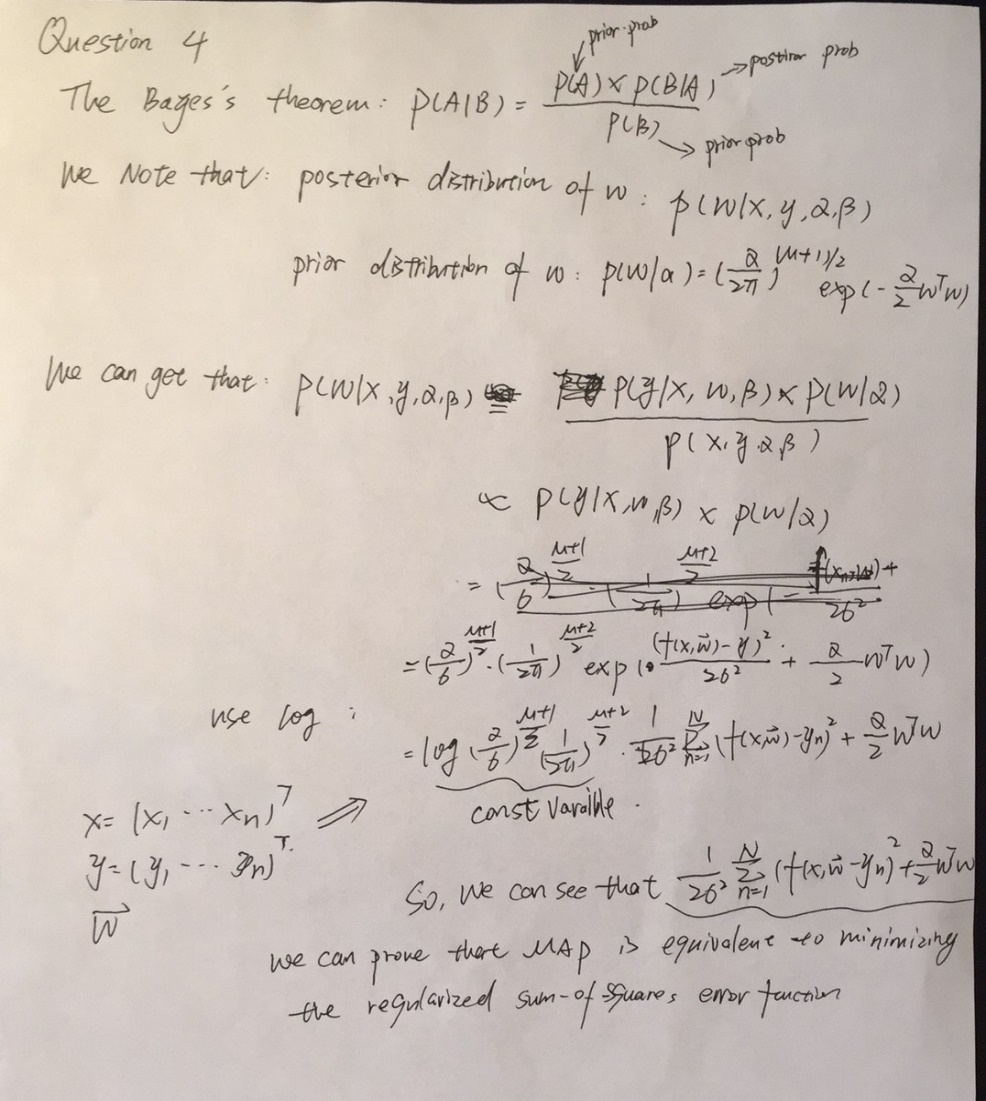 Question 4
prior prob
The Bayes's theorem: P(A|B) = P(A) × P(B|A) / P(B)
→ postiror prob
→ prior prob
We Note that: posterior distribution of w: p(w|x, y, α, β)
prior distribution of w: p(w|α) = (α/2π)^(M+1)/2 exp(-α/2 wᵀw)
We can get that: P(w|x, y, α, β) P(y|x, w, β) × P(w|α) / P(x, y, α, β)
∝ P(y|x, w, β) × P(w|α)
= (α/6)^(M+1)/2 · (1/2π)^(M+2)/2 exp( (f(x,w⃗)-y)² / 26² + α/2 wᵀw)
use log :
= log (α/6)^(M+1)/2 (1/2π)^(M+2)/2 · 1/26² Σ_{n=1}^{N} (f(x,w⃗)-yn)² + α/2 wᵀw
const varaible.
x = (x, ··· xn)ᵀ ⇒
y = (y, ··· yn)ᵀ.
w⃗
So, we can see that 1/26² Σ_{n=1}^{N} (f(x,w⃗ - yn)² + α/2 wᵀw
we can prove that MAP is equivalent to minimizing
the regularized sum-of-squares error function